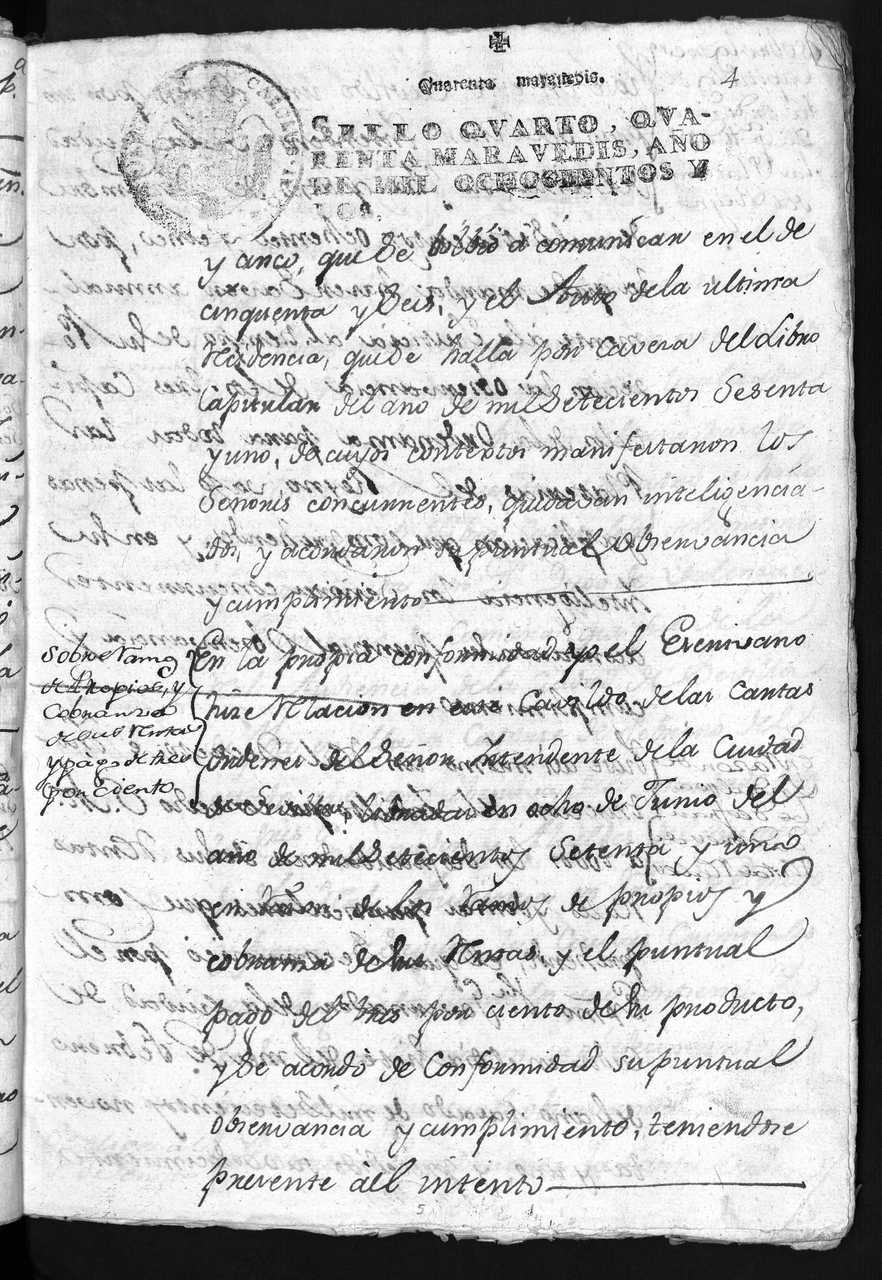 ✠
Quarenta maravedis.
4
CAROLUS
SELLO QVARTO, QVA-
RENTA MARAVEDIS, AÑO
DE MIL OCHOCIENTOS Y
DOS.
y cinco, que se volvió a comunicar en el de
cinquenta y seis, y el Auto de la ultima
Residencia, que se halla por cavera del Libro
Capitular del año de mil setecientos sesenta
y uno, de cuyos contextos manifestaron los
Señores concurrentes, quedavan inteligencia-
dos, y acordaron su puntual observancia
y cumplimiento
Sobre Ramo
de Propios, y
cobranza
de sus Rentas
y pago de tres
por ciento
En la propia conformidad yo el Escrivano
hize Relacion en este Cavildo de las Cartas
Ordenes del Señor Intendente de la Ciudad
de Sevilla, libradas en ocho de Junio del
año de mil setecientos setenta y uno
en razon de los Ramos de propios y
cobranza de sus Rentas, y el puntual
pago del tres por ciento de su producto,
y se acordó de conformidad su puntual
observancia y cumplimiento, teniendose
presente al intento